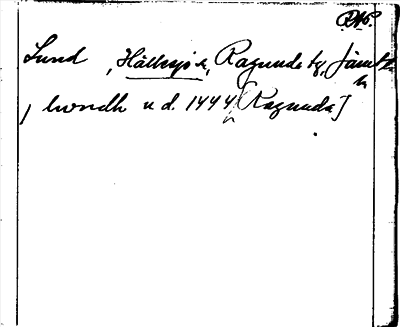 RAP.
Lund, Hällesjö s, Ragunda tg, Jämtl
, lwndh u d. 1444 [Ragunda]